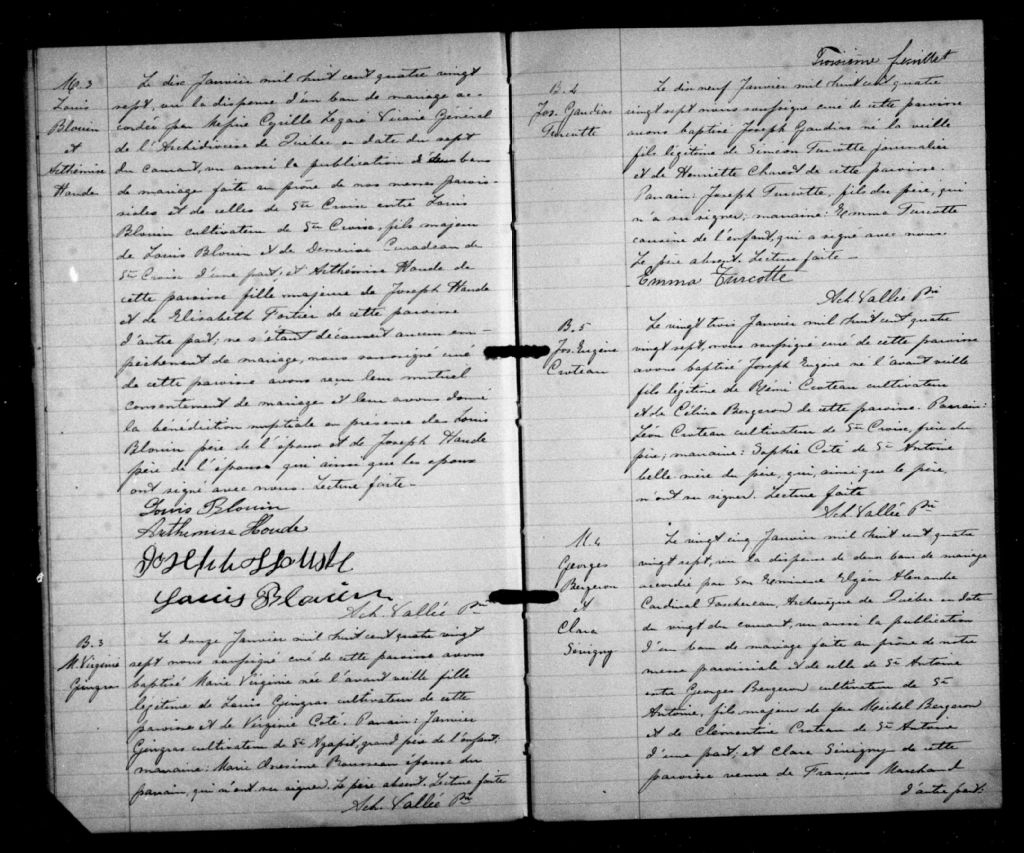 M. 3
Louis
Blouin
et
Arthémise
Houde
Le dix Janvier mil huit cent quatre vingt
sept, vu la dispense d'un ban de mariage ac-
cordée par Messire Cyrille Legaré Vicaire Général
de l'Archidiocèse de Québec en date du sept
du courant, vu aussi la publication de deux bans
de mariage faite au prône de nos messes parois-
siales et de celles de Ste Croix entre Louis
Blouin cultivateur de Ste Croix, fils majeur
de Louis Blouin et de Demerise
Ste Croix d'une part; et Arthémise Houde de
cette paroisse fille majeure de Joseph Houde
et de Elisabeth Fortier de cette paroisse
d'autre part; ne s'étant découvert aucun em-
pêchement de mariage, nous soussigné curé
de cette paroisse avons reçu leur mutuel
consentement de mariage et leur avons donné
la bénédiction nuptiale en présence de Louis
Blouin père de l'époux et de Joseph Houde
père de l'épouse qui ainsi que les époux
ont signé avec nous. Lecture faite -
Louis Blouin
Arthemise Houde
Joseph Houde
Louis Blouin
Ach. Vallée Ptre
B. 3
M. Virginie
Gingras
Le douze Janvier mil huit cent quatre vingt
sept nous soussigné curé de cette paroisse avons
baptisé Marie Virginie née l'avant veille fille
légitime de Louis Gingras cultivateur de cette
paroisse et de Virginie Coté. Parrain: Janvier
Gingras cultivateur de St Agapit, grand père de l'enfant;
marraine: Marie Onésime Rousseau épouse du
parrain, qui n'ont su signer. Le père absent. Lecture faite
Ach. Vallée Ptre
Troisième feuillet
B. 4
Jos. Gaudias
Turcotte
Le dix neuf Janvier mil huit cent quatre
vingt sept nous soussigné curé de cette paroisse
avons baptisé Joseph Gaudias né la veille
fils légitime de Siméon Turcotte journalier
et de Henriette Charest de cette paroisse.
Parrain: Joseph Turcotte, fils du père, qui
n'a su signer; marraine: Emma Turcotte
cousine de l'enfant, qui a signé avec nous
Le père absent. Lecture faite -
Emma Turcotte
Ach Vallée Ptre
B. 5
Jos. Eugène
Croteau
Le vingt trois Janvier mil huit cent quatre
vingt sept, nous soussigné curé de cette paroisse
avons baptisé Joseph Eugène né l'avant veille
fils légitime de Rémi Croteau cultivateur
et de Célina Bergeron de cette paroisse. Parrain:
Léon Croteau cultivateur de Ste Croix, frère du
père; marraine: Sophie Coté de St Antoine
belle mère du père, qui, ainsi que le père,
n'ont su signer. Lecture faite
Ach. Vallée Ptre
M. 4
Georges
Bergeron
et
Clara
Sévigny
Le vingt cinq Janvier mil huit cent quatre
vingt sept, vu la dispense de deux bans de mariage
accordée par Son Eminence Elzéar Alexandre
Cardinal Taschereau, Archevêque de Québec en date
du vingt du courant, vu aussi la publication
d'un ban de mariage faite au prône de notre
messe paroissiale et de celle de St Antoine
entre Georges Bergeron cultivateur de St
Antoine, fils majeur de feu Michel Bergeron
et de Clémentine Croteau de St Antoine
d'une part, et Clara Sévigny de cette
paroisse veuve de François Marchand
d'autre part.